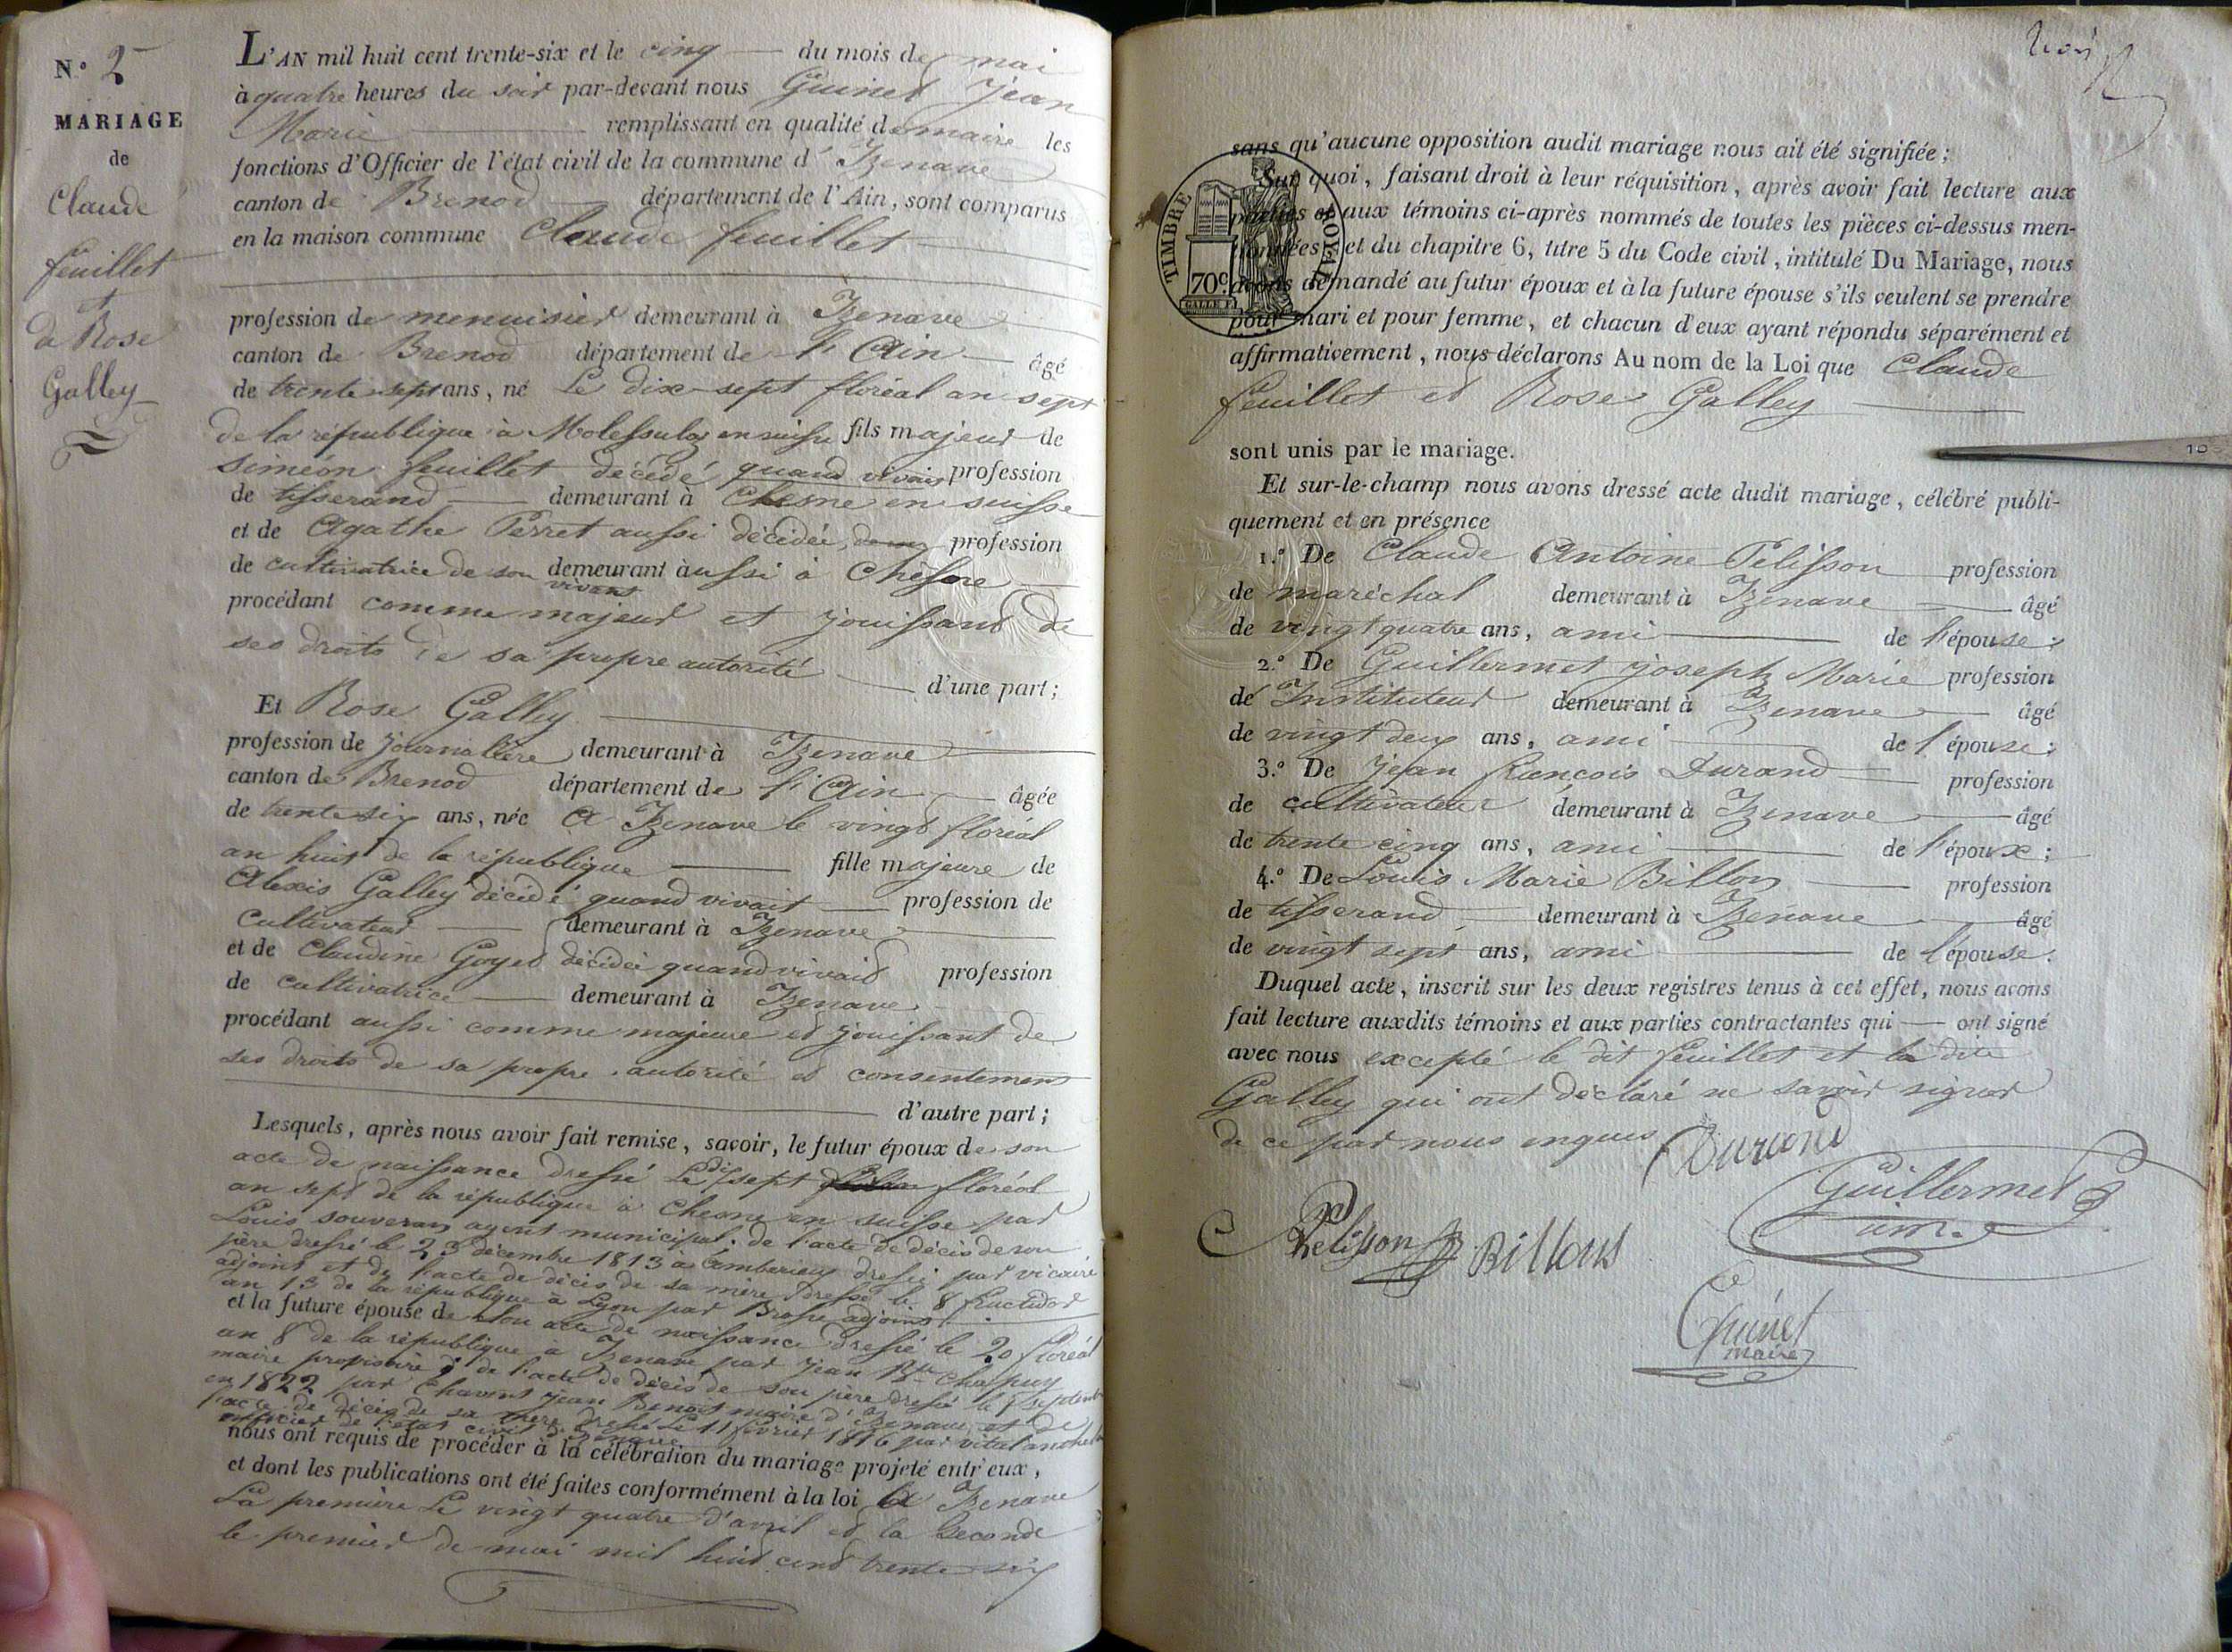 N.° 2
MARIAGE
de
Claude
feuillet
et
de Rose
Galley
L'AN mil huit cent trente-six et le cinq du mois de mai
à quatre heures du soir par-devant nous Guinet Jean
Marie remplissant en qualité de maire les
fonctions d'Officier de l'état civil de la commune d' Izenave
canton de Brenod département de l'Ain, sont comparus
en la maison commune Claude feuillet
profession de menuisier demeurant à Izenave
canton de Brenod département de l'Ain âgé
de trente sept ans, né Le dix-sept floréal an sept
de la république à Molessulaz en suisse fils majeur de
siméon feuillet décédé quand vivait profession
de tisserand demeurant à Chesne en suisse
et de Agathe Perret aussi décédée, profession
de cultivatrice de son vivant demeurant aussi à Chesne
procédant comme majeur et jouissant de
ses droits de sa propre autorité d'une part;
Et Rose Galley
profession de journalière demeurant à Izenave
canton de Brenod département de l'Ain âgée
de trente six ans, née A Izenave le vingt floréal
an huit de la république fille majeure de
Alexis Galley décédé quand vivait profession de
Cultivateur demeurant à Izenave
et de Claudine Goyet décédée quand vivait profession
de cultivatrice demeurant à Izenave
procédant aussi comme majeure et jouissant de
ses droits de sa propre autorité et consentement
d'autre part;
Lesquels, après nous avoir fait remise, savoir, le futur époux de son
acte de naissance dressé Le dix sept floréal
an sept de la république à Chesne en suisse par
Louis souveran agent municipal. de l'acte de décès de son
père dressé le 23 décembre 1813 à amberieux dressé par vicaire
adjoint et de l'acte de décès de sa mère dressé le 8 fructidor
an 13 de la république à Lyon par Brosse adjoint.
et la future épouse de son acte de naissance dressé le 20 floréal
an 8 de la république à Izenave par jean Bte chappuy
maire provisoire de l'acte de décès de son père dressé le septembre
en 1822 par Chavent jean Benoit maire d'Izenave, et de
l'acte de décès de sa mère dressé Le 11 février 1816 par vital
officier de l'état civil d'Izenave
nous ont requis de procéder à la célébration du mariage projeté entr'eux,
et dont les publications ont été faites conformément à la loi A Izenave
La première Le vingt quatre d'avril et la seconde
le premier de mai mil huit cent trente six
trois
TIMBRE ROYAL
70c.
GALLE F.
sans qu'aucune opposition audit mariage nous ait été signifiée;
Sur quoi, faisant droit à leur réquisition, après avoir fait lecture aux
parties et aux témoins ci-après nommés de toutes les pièces ci-dessus men-
tionnées, et du chapitre 6, titre 5 du Code civil, intitulé Du Mariage, nous
avons demandé au futur époux et à la future épouse s'ils veulent se prendre
pour mari et pour femme, et chacun d'eux ayant répondu séparément et
affirmativement, nous déclarons Au nom de la Loi que Claude
feuillet et Rose Galley
sont unis par le mariage.
Et sur-le-champ nous avons dressé acte dudit mariage, célébré publi-
quement et en présence
1.° De Claude Antoine Pelisson profession
de maréchal demeurant à Izenave âgé
de vingt quatre ans, ami de l'épouse;
2.° De Guillermet joseph Marie profession
de Instituteur demeurant à Izenave âgé
de vingt deux ans, ami de l'épouse;
3.° De Jean François Durand profession
de cultivateur demeurant à Izenave âgé
de trente cinq ans, ami de l'époux;
4.° De Louis Marie Billon profession
de tisserand demeurant à Izenave âgé
de vingt sept ans, ami de l'épouse.
Duquel acte, inscrit sur les deux registres tenus à cet effet, nous avons
fait lecture auxdits témoins et aux parties contractantes qui ont signé
avec nous excepté le dit feuillet et la dite
Galley qui ont déclaré ne savoir signer
de ce par nous enquis
Durand
Guillermet
Pelisson
Billons
Guinet
maire
10